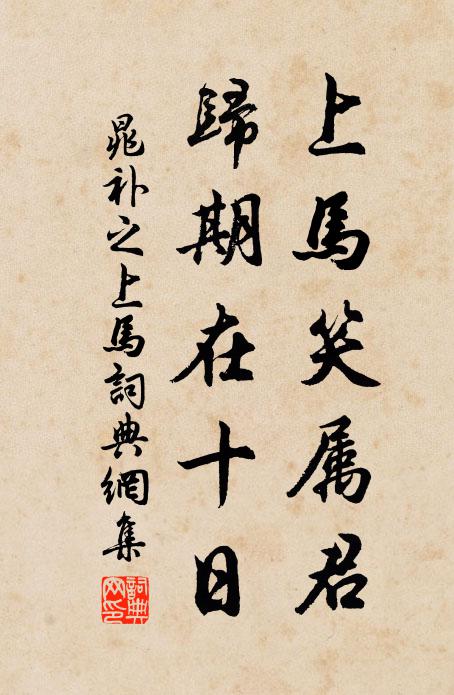 上馬笑属君
歸期在十日
晁补之上馬詞典網集
詞典網印